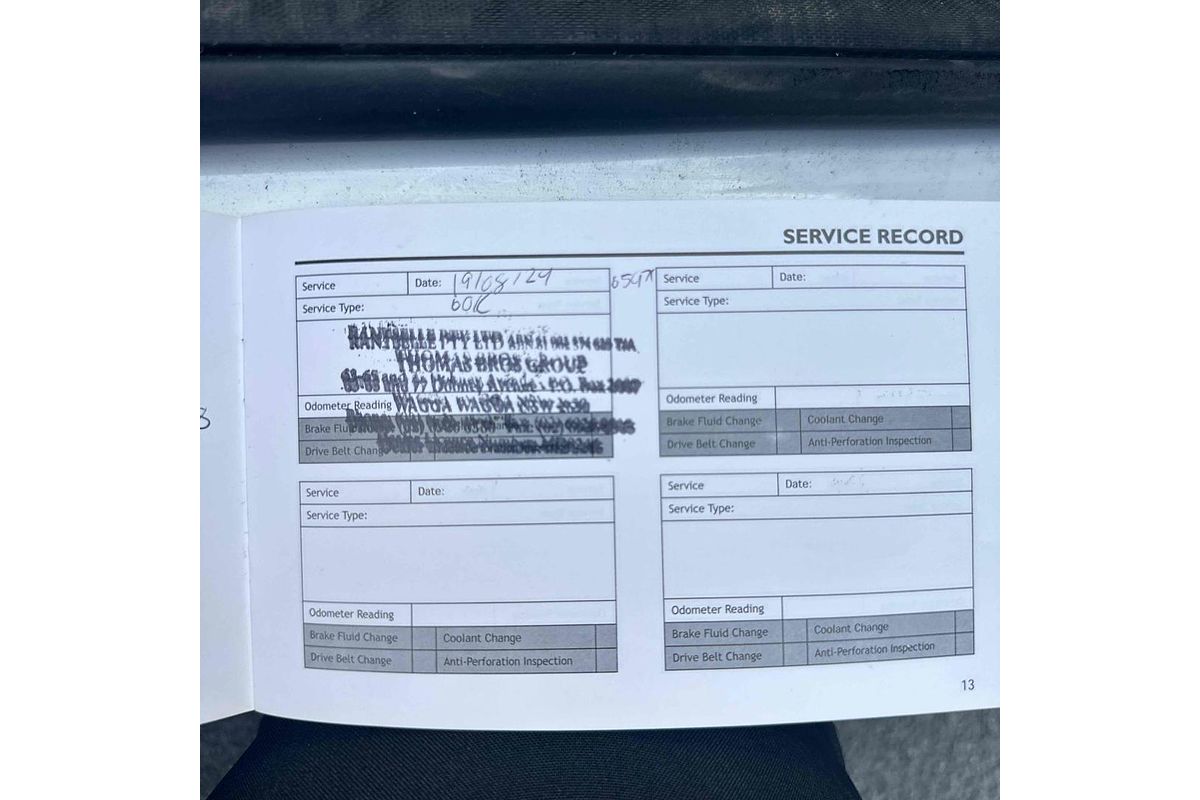 SERVICE RECORD
Service Date: 19/08/24
Service Type: 60K
RANTBELLE PTY LTD ABN
THOMAS BROS GROUP
63-65 and Dobney Avenue P.O. Box
Odometer Reading WAGGA WAGGA NSW
Brake Fluid
Drive Belt Change
Service Date:
Service Type:
Odometer Reading
Brake Fluid Change Coolant Change
Drive Belt Change Anti-Perforation Inspection
Service Date:
Service Type:
Odometer Reading
Brake Fluid Change Coolant Change
Drive Belt Change Anti-Perforation Inspection
Service Date:
Service Type:
Odometer Reading
Brake Fluid Change Coolant Change
Drive Belt Change Anti-Perforation Inspection
13